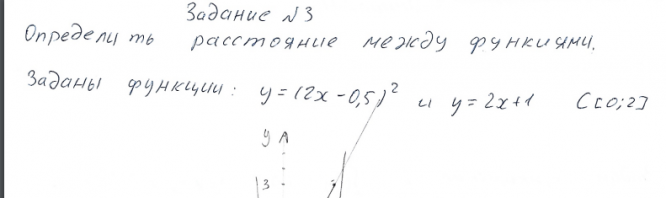 Задание №3
Определить расстояние между функциями.
Заданы функции: y = (2x - 0,5)² и y = 2x+1 C[0;2]
y
3